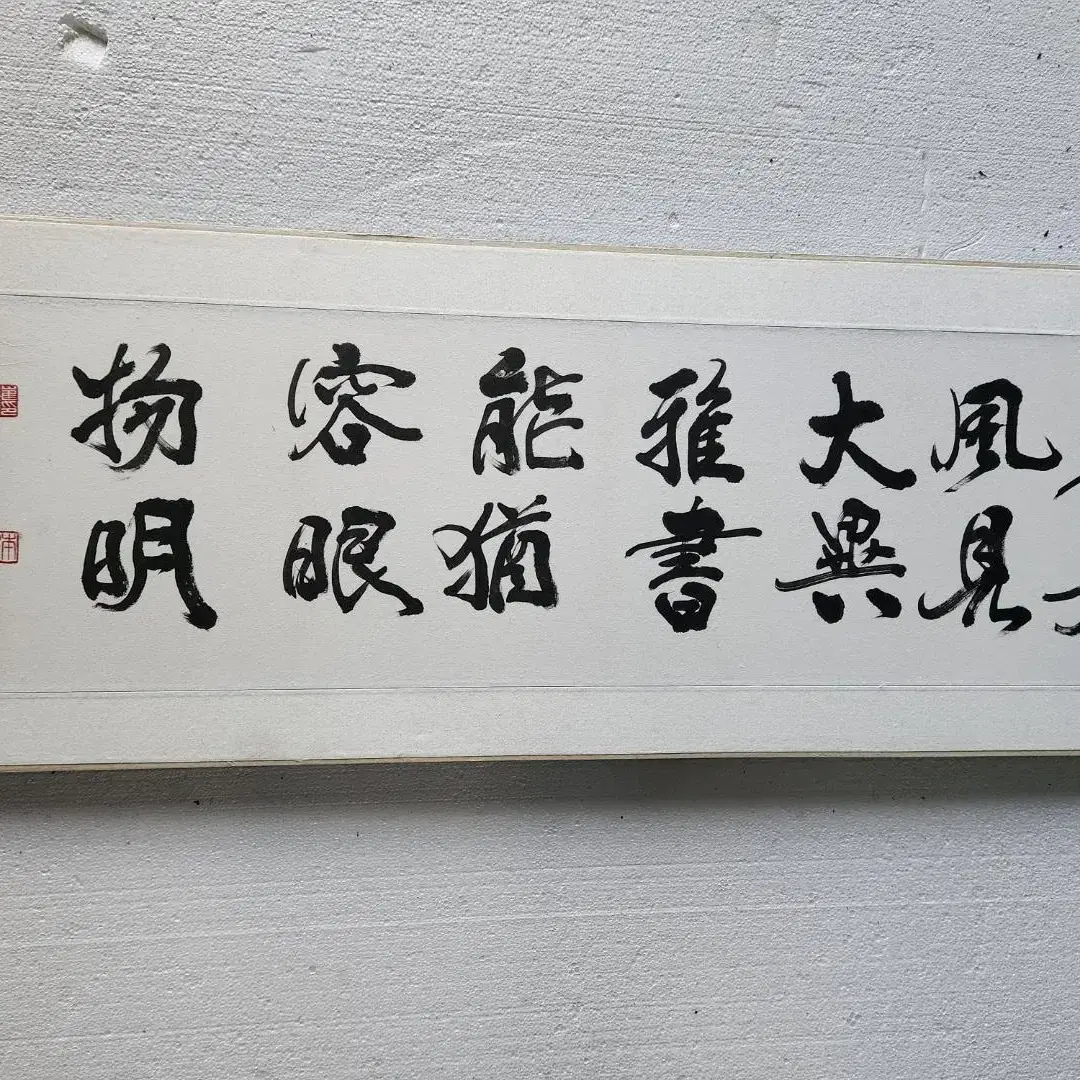 風大雅能容物
見異書猶眼明